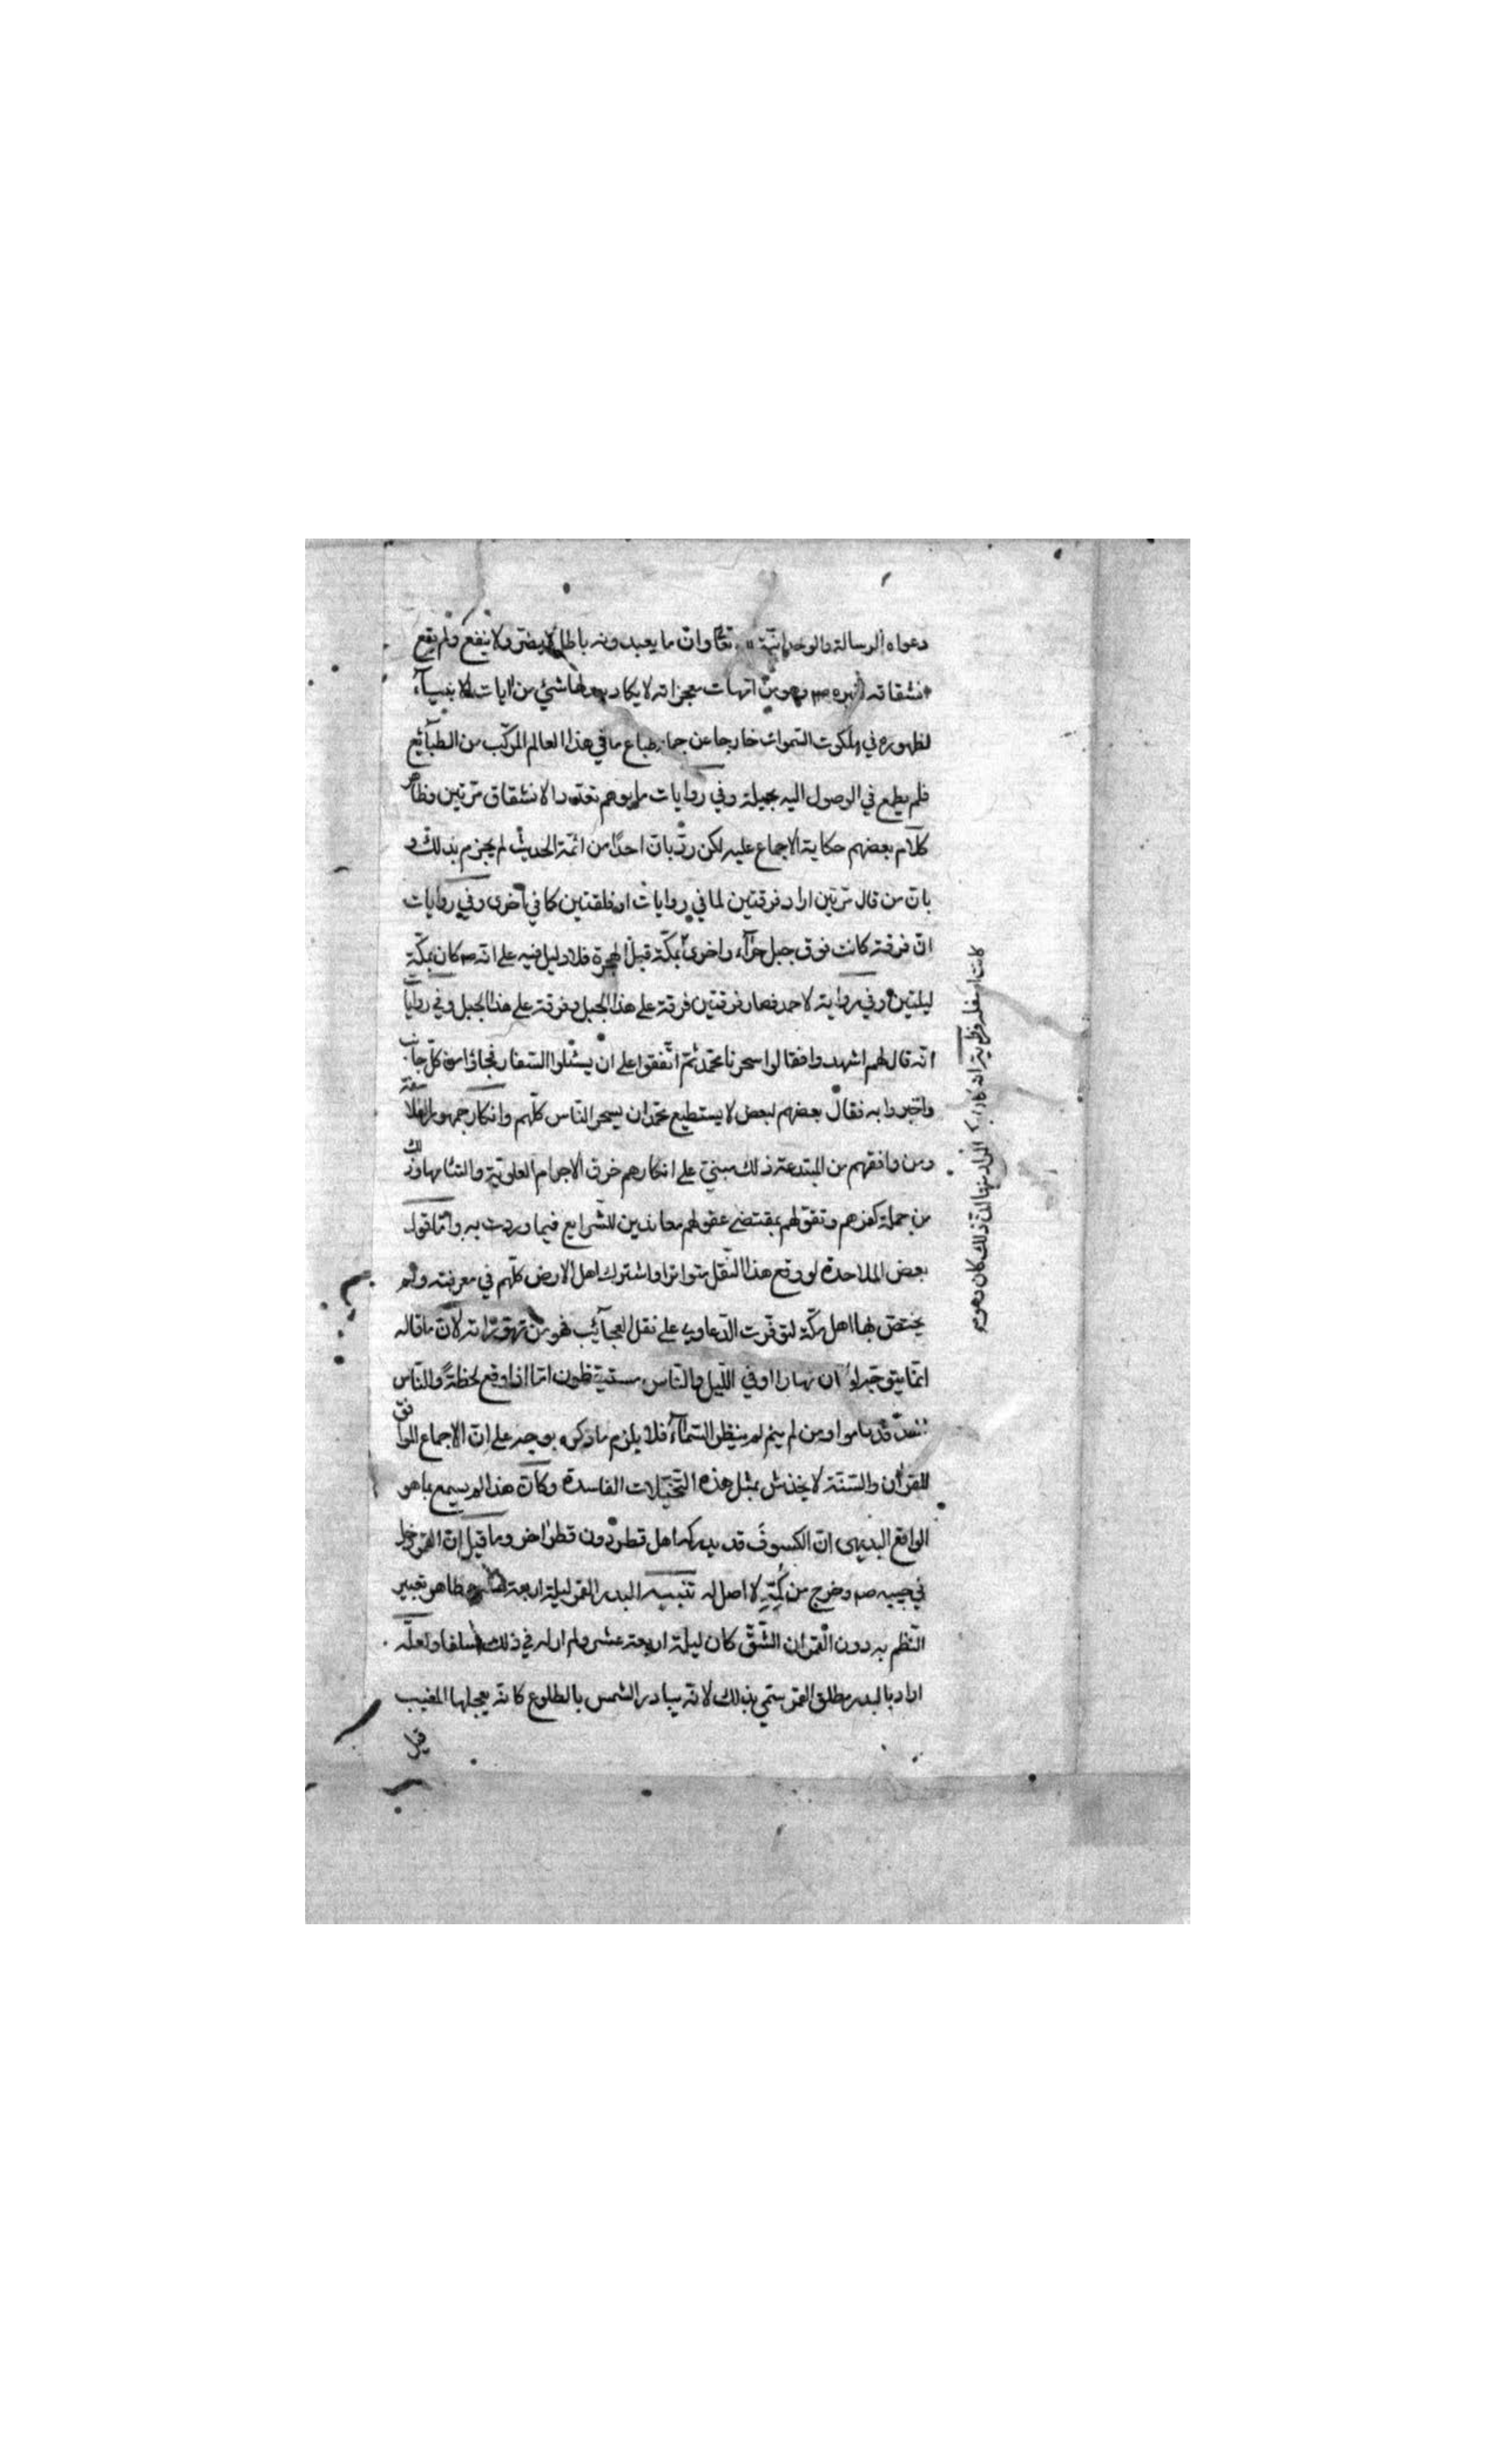 دعواه الرسالة والوحدانية لله تعالى وان ما يعبدونه باطل لا يضر ولا ينفع ولم يقع
انشقاقه لغيره صم وهو من امهات معجزاته لا يكاد يعدلها شئ من ايات الانبيآء
لظهوره في ملكوت السموات خارجا عن جملة طباع ما في هذا العالم المركب من الطبآئع
فلم يطمع في الوصول اليه بحيلة وفي روايات ما يوهم تعدد الانشقاق مرتين وظاهر
كلام بعضهم حكاية الاجماع عليه لكن ردّ بانّ احدًا من ائمّة الحديث لم يجزم بذلك و
بانّ من قال مرتين اراد فرقتين لما في روايات او فلقتين كما في اخرى وفي روايات
انّ فرقة كانت فوق جبل حرآء واخرى بمكّة قبل الهجرة فلا دليل فيه على انه صم كان بمكّة
ليلتين وفي رواية لاحمد فصار فرقتين فرقة على هذا الجبل وفرقة على هذا الجبل وفي روايات
انّه قال لهم اشهدوا فقالوا سحرنا محمّد ثمّ اتّفقوا على ان يسٔلوا السفار فجاؤا من كلّ جانب
واخبروا به فقال بعضهم لبعض لا يستطيع محمّد ان يسحر النّاس كلّهم وانكار جمهور الفلاسفة
ومن وافقهم من المبتدعة ذلك مبنيّ على انكارهم خرق الاجرام العلويّة والتئامها وذلك
من جملة كفرهم وتقوّلهم بمقتضى عقولهم معاندين للشّرايع فيما وردت به وامّا قول
بعض الملاحدة لو وقع هذا النّقل متواترا واشترك اهل الارض كلّهم في معرفته ولم
يختصّ بها اهل مكّة لتوفّرت الدّعاوى على نقل العجآئب فهو من تهوّراته لانّ ما قاله
انّما يتوجّه لو كان نهارا او في اللّيل والنّاس مستيقظون امّا اذا وقع لحظةً والنّاس
قد ناموا ومن لم ينم لم ينظر السّمآء فلا يلزم ما ذكره بوجه على انّ الاجماع الموافق
للقرآن والسّنّة لا يخدش بمثل هذه التّخيّلات الفاسدة وكانّ هذا لم يسمع بما هو
الواقع البديهى انّ الكسوف قد يدركه اهل قطر دون قطر اخر وما قيل انّ القمر دخل
في جيبه صم وخرج من كمّه لا اصل له تنبيه البدر القمر ليلة اربعة عشر وظاهر تعبير
النّظم به دون القمر ان الشّقّ كان ليلة اربعة عشر ولم ار له في ذلك سلفا ولعلّه
اراد بالبدر مطلق القمر سمّي بذلك لانّه يبادر الشمس بالطلوع كانّه يعجلها المغيب
قيل
كانت اسفله المراد منها انّ ذلك كان وهو صم